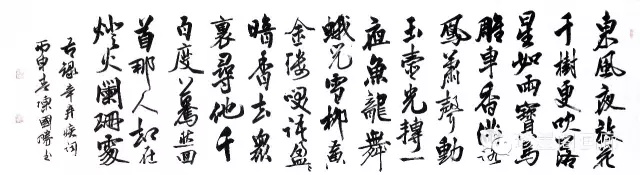 東風夜放花
千樹更吹落
星如雨寶馬
雕車香滿路
鳳蕭聲動
玉壺光轉一
夜魚龍舞
蛾兒雪柳黃
金縷笑語盈盈
暗香去眾
裏尋他千
百度驀然回
首那人却在
燈火闌珊處
右錄辛弃疾詞
丙申春陳國